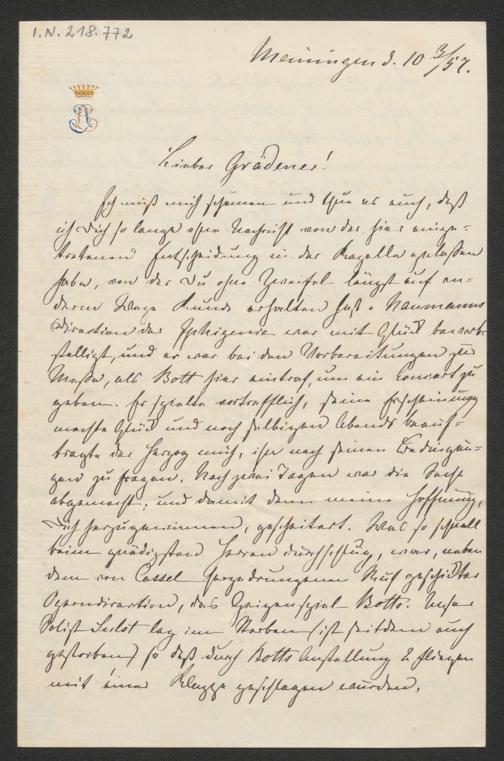 I.N. 218.772
Meiningen d. 10 3/57.
Lieber Grädener!
Ich muß mich schämen und thue es auch, daß
ich Dich so lange ohne Nachricht von der hier einge-
tretenen Entscheidung in der Kapelle gelassen
habe, von der Du ohne Zweifel längst auf an-
derm Wege Kunde erhalten hast. Naumanns
Direction der Iphigenie war mit Glück bewerk-
stelligt, und er war bei den Vorbereitungen zur
Messe, als Bott hier eintraf, um ein Concert zu
geben. Er spielte vortrefflich, seine Erscheinung
machte Glück und noch selbigen Abends beauf-
tragte der Herzog mich, ihn nach seinen Bedingun-
gen zu fragen. Nach zwei Tagen war die Sache
abgemacht, und damit denn meine Hoffnung,
Dich herzugewinnen, gescheitert. Was so schnell
beim gnädigsten Herren durchschlug, war, neben
dem von Cassel hergedrungenen Ruf geschickter
Operndirection, das Geigenspiel Botts. Unser
Solist lag im Sterben (ist seitdem auch
gestorben) so daß durch Botts Anstellung 2 Fliegen
mit einer Klappe geschlagen wurden.